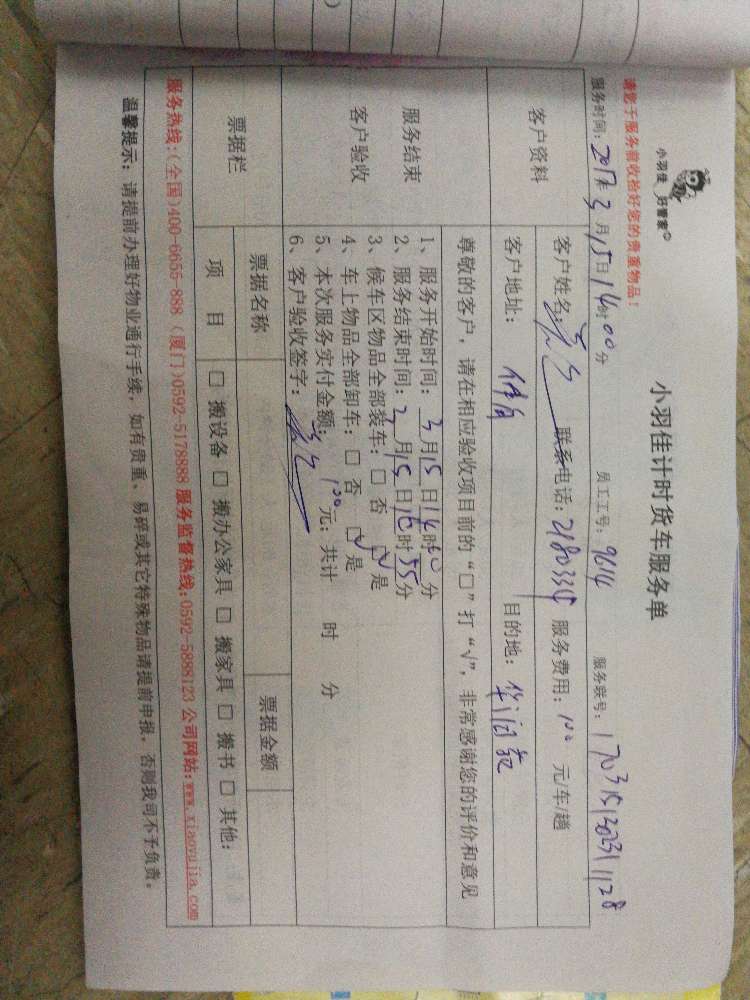 小羽佳 好管家
小羽佳计时货车服务单
请您于服务前收检好您的贵重物品！
服务时间：2017年3月15日14时00分 员工工号：9614 服务联号：170315130231128
客户资料 客户姓名： 联系电话：2180334 服务费用：100 元/车/趟
客户地址： 目的地：
尊敬的客户，请在相应验收项目前的“□”打“√”，非常感谢您的评价和意见
服务结束
客户验收
1、服务开始时间：3月15日14时00分
2、服务结束时间：3月15日16时55分
3、候车区物品全部装车：□ 否 ☑ 是
4、车上物品全部卸车：□ 否 ☑ 是
5、本次服务实付金额：100元；共计 时 分
6、客户验收签字：
票据栏 票据名称 票据金额
项 目 □ 搬设备 □ 搬办公家具 □ 搬家具 □ 搬书 □ 其他：
服务热线：(全国)400-6655-888 (厦门)0592-5178888 服务监督热线：0592-5888123 公司网站：www.xiaoyujia.com
温馨提示：请提前办理好物业通行手续，如有贵重、易碎或其它特殊物品请提前申报，否则我司不予负责。